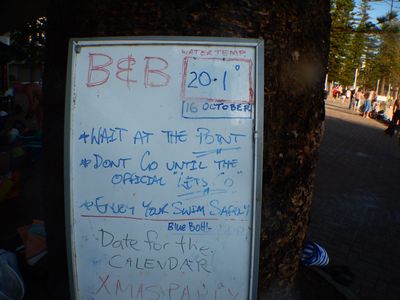 B & B
WATER TEMP
20.1°
16 OCTOBER
* WAIT AT THE POINT
* DONT GO UNTIL THE
OFFICIAL "LETS GO"
* ENJOY YOUR SWIM SAFELY
BLUE BOHL
Date for the
CALENDAR
XMAS PARTY